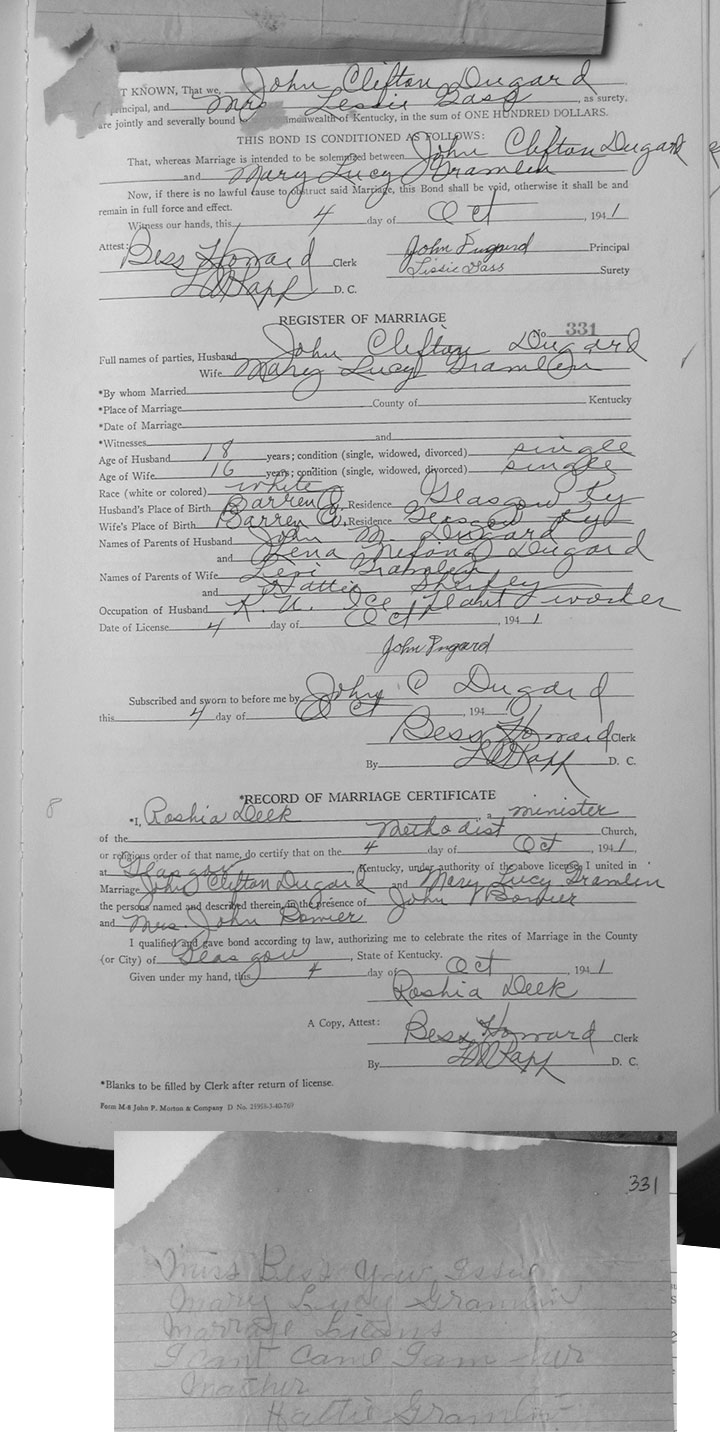 T KNOWN, That we, John Clifton Dugard
principal, and Mrs Lessie Gass, as surety,
are jointly and severally bound monwealth of Kentucky, in the sum of ONE HUNDRED DOLLARS.
THIS BOND IS CONDITIONED AS FOLLOWS:
That, whereas Marriage is intended to be solemnized between John Clifton Dugard
and Mary Lucy Gramlin
Now, if there is no lawful cause to obstruct said Marriage, this Bond shall be void, otherwise it shall be and
remain in full force and effect.
Witness our hands, this 4 day of Oct, 1941
Attest: Bess Howard Clerk John Dugard Principal
Lissie Gass Surety
D. C.
REGISTER OF MARRIAGE
No 331
Full names of parties, Husband John Clifton Dugard
Wife Mary Lucy Gramlin
*By whom Married
*Place of Marriage County of Kentucky
*Date of Marriage
*Witnesses and
Age of Husband 18 years; condition (single, widowed, divorced) single
Age of Wife 16 years; condition (single, widowed, divorced) single
Race (white or colored) white
Husband's Place of Birth Barren Co, Residence Glasgow Ky
Wife's Place of Birth Barren Co, Residence Glasgow Ky
Names of Parents of Husband John M. Dugard
and Lena Dugard
Names of Parents of Wife Levi Gramlin
and Hattie Shirley
Occupation of Husband K. U. Ice Plant worker
Date of License 4 day of Oct, 1941
John Dugard
Subscribed and sworn to before me by John C Dugard
this 4 day of Oct, 194
Bess Howard Clerk
By D. C.
8
*RECORD OF MARRIAGE CERTIFICATE
*I, Roshia Deek a minister
of the Methodist Church,
or religious order of that name, do certify that on the 4 day of Oct, 1941,
at Glasgow, Kentucky, under authority of the above license I united in
Marriage John Clifton Dugard and Mary Lucy Gramlin
the persons named and described therein, in the presence of John Bowier
and Mrs. John Bowier
I qualified and gave bond according to law, authorizing me to celebrate the rites of Marriage in the County
(or City) of Glasgow, State of Kentucky.
Given under my hand, this 4 day of Oct, 1941
Roshia Deek
A Copy, Attest: Bess Howard Clerk
By D. C.
*Blanks to be filled by Clerk after return of license.
Form M-8 John P. Morton & Company D No. 21958-3-40-769
331
Miss Bess you issie
Mary Lucy Gramlin
Marrage Licans
I cant came I am her
Mather
Hattie Gramlin